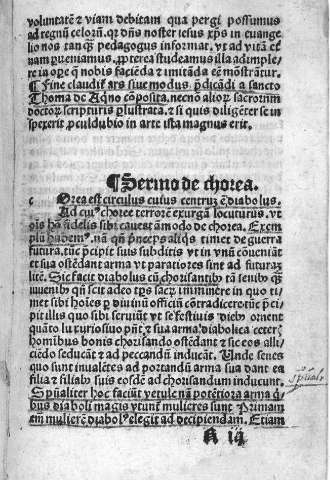 voluntatē ⁊ viam debitam qua pergi possumus
ad regnū celorū. qȝ dñs noster iesus xp̄s in euange
lio nos tanqȝ pedagogus informat. vt ad vitā et̄
nam perueniamus. propterea studeamus illa adimple
re in opere q̄ nobis faciēda ⁊ imitāda eē mōstrātur.
¶ Fine claudit̄ ars siue modus p̄dicādi a sancto
Thoma de Aq̄no cōposita. necnō aliorū sacrorum
doctorū scripturis p̄lustrata. ⁊ si quis diligēter se in
spexerit proculdubio in arte ista magnus erit.
¶ Sermo de chorea.
Orea est circulus cuius centrum ē diabolus.
Ad cuiꝰ choree terrorē exurgā locuturus. vt
oēs fideles sibi caueāt a modo de chorea. Exem
plū habemꝰ. nā qn̄ p̄nceps aliq̄s timet de guerra
futura. tūc p̄cipit suis subditis vt in vnū conueniāt
et sua ostēdant arma vt paratiores sint ad futurā
litē. Sic facit diabolus cū chorisantibꝰ
quenibꝰ qn̄ scit adeo tp̄s sacrū imminere in quo ti
met sibi hoīes per diuinū officiū contradicere. tūc p̄ci
pit illis quo sibi seruiūt vt se festiuis diebꝰ ornent
quāto luxuriosius pn̄t ⁊ sua arma diabolica ceterꝭ
hominibus bonis chorisando ostēdant ⁊ sic eos alli
ciēdo seducant ⁊ ad peccandū inducāt. Unde senes
quo sunt inualētes ad portandū arma sua dant ea
filiabꝰ suis eosdē ad chorisandum inducunt.
Spūaliter hoc faciūt vetule nā potētiora arma q̄
bus diaboli magis vtunt̄ mulieres sunt Primam
em̄ mulierē diabolꝰ elegit ad decipiendam. Etiam
spūal
A iij